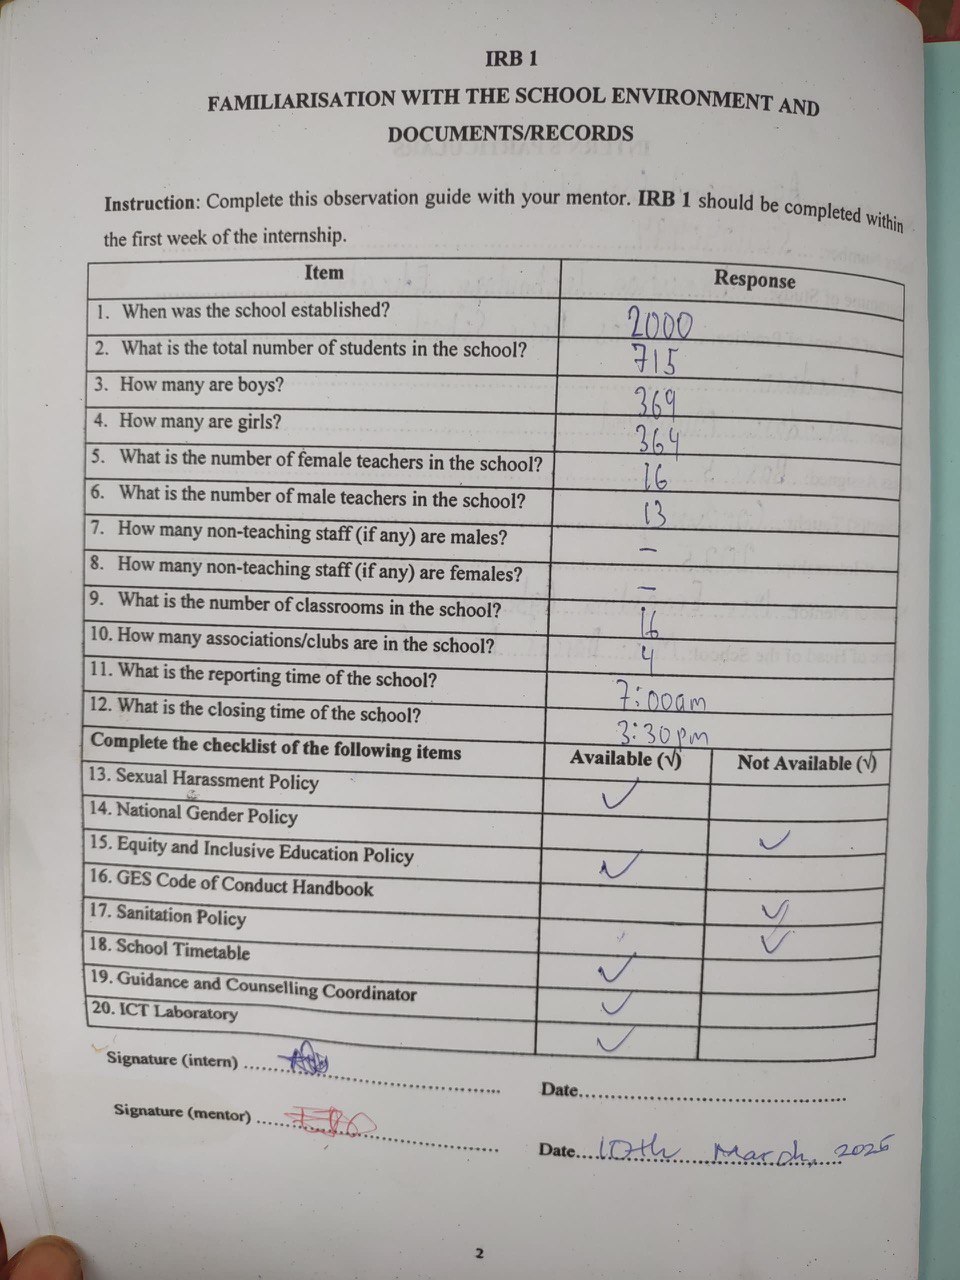 IRB 1
FAMILIARISATION WITH THE SCHOOL ENVIRONMENT AND
DOCUMENTS/RECORDS
Instruction: Complete this observation guide with your mentor. IRB 1 should be completed within
the first week of the internship.
Item Response
1. When was the school established? 2000
2. What is the total number of students in the school? 715
3. How many are boys? 369
4. How many are girls? 364
5. What is the number of female teachers in the school? 16
6. What is the number of male teachers in the school? 13
7. How many non-teaching staff (if any) are males? –
8. How many non-teaching staff (if any) are females? –
9. What is the number of classrooms in the school? 16
10. How many associations/clubs are in the school? 4
11. What is the reporting time of the school? 7:00am
12. What is the closing time of the school? 3:30pm
Complete the checklist of the following items Available (√) Not Available (√)
13. Sexual Harassment Policy ✓
14. National Gender Policy ✓
15. Equity and Inclusive Education Policy ✓
16. GES Code of Conduct Handbook ✓
17. Sanitation Policy ✓
18. School Timetable ✓
19. Guidance and Counselling Coordinator ✓
20. ICT Laboratory ✓
Signature (intern) ........................ Date........................
Signature (mentor) ........................ Date....10th March, 2025
2